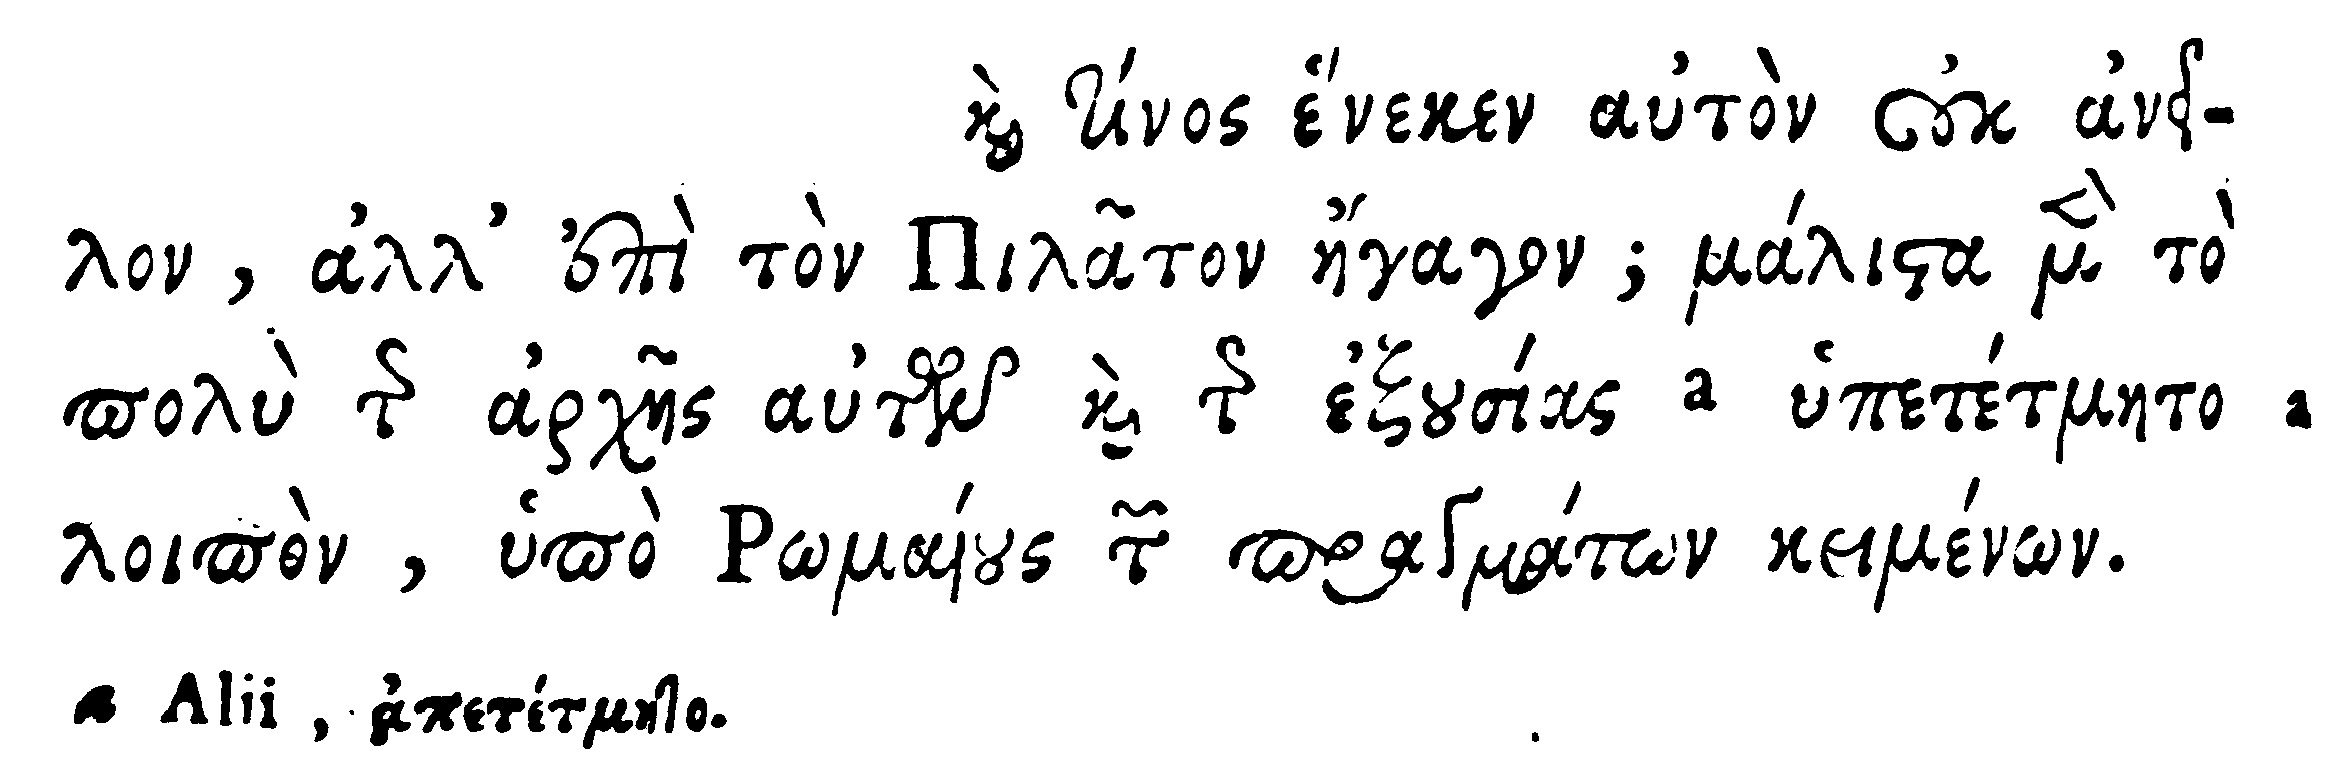 καὶ τίνος ἕνεκεν αὐτὸν οὐκ ἀνεῖ-
λον, ἀλλ' ἐπὶ τὸν Πιλᾶτον ἤγαγον; μάλιστα μὲν τὸ
πολὺ τῆς ἀρχῆς αὐτῶν καὶ τῆς ἐξουσίας a ὑπετέτμητο a
λοιπὸν, ὑπὸ Ῥωμαίους τῶν πραγμάτων κειμένων.
a Alii, ἀπετέτμητο.